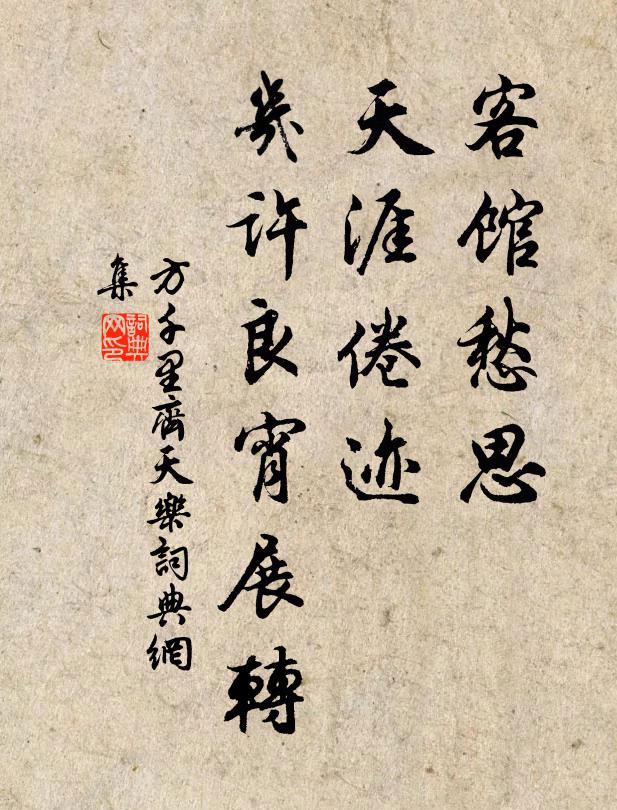 客館愁思
天涯倦迹
幾許良宵展轉
方千里齊天樂詞典網
集
詞典网印